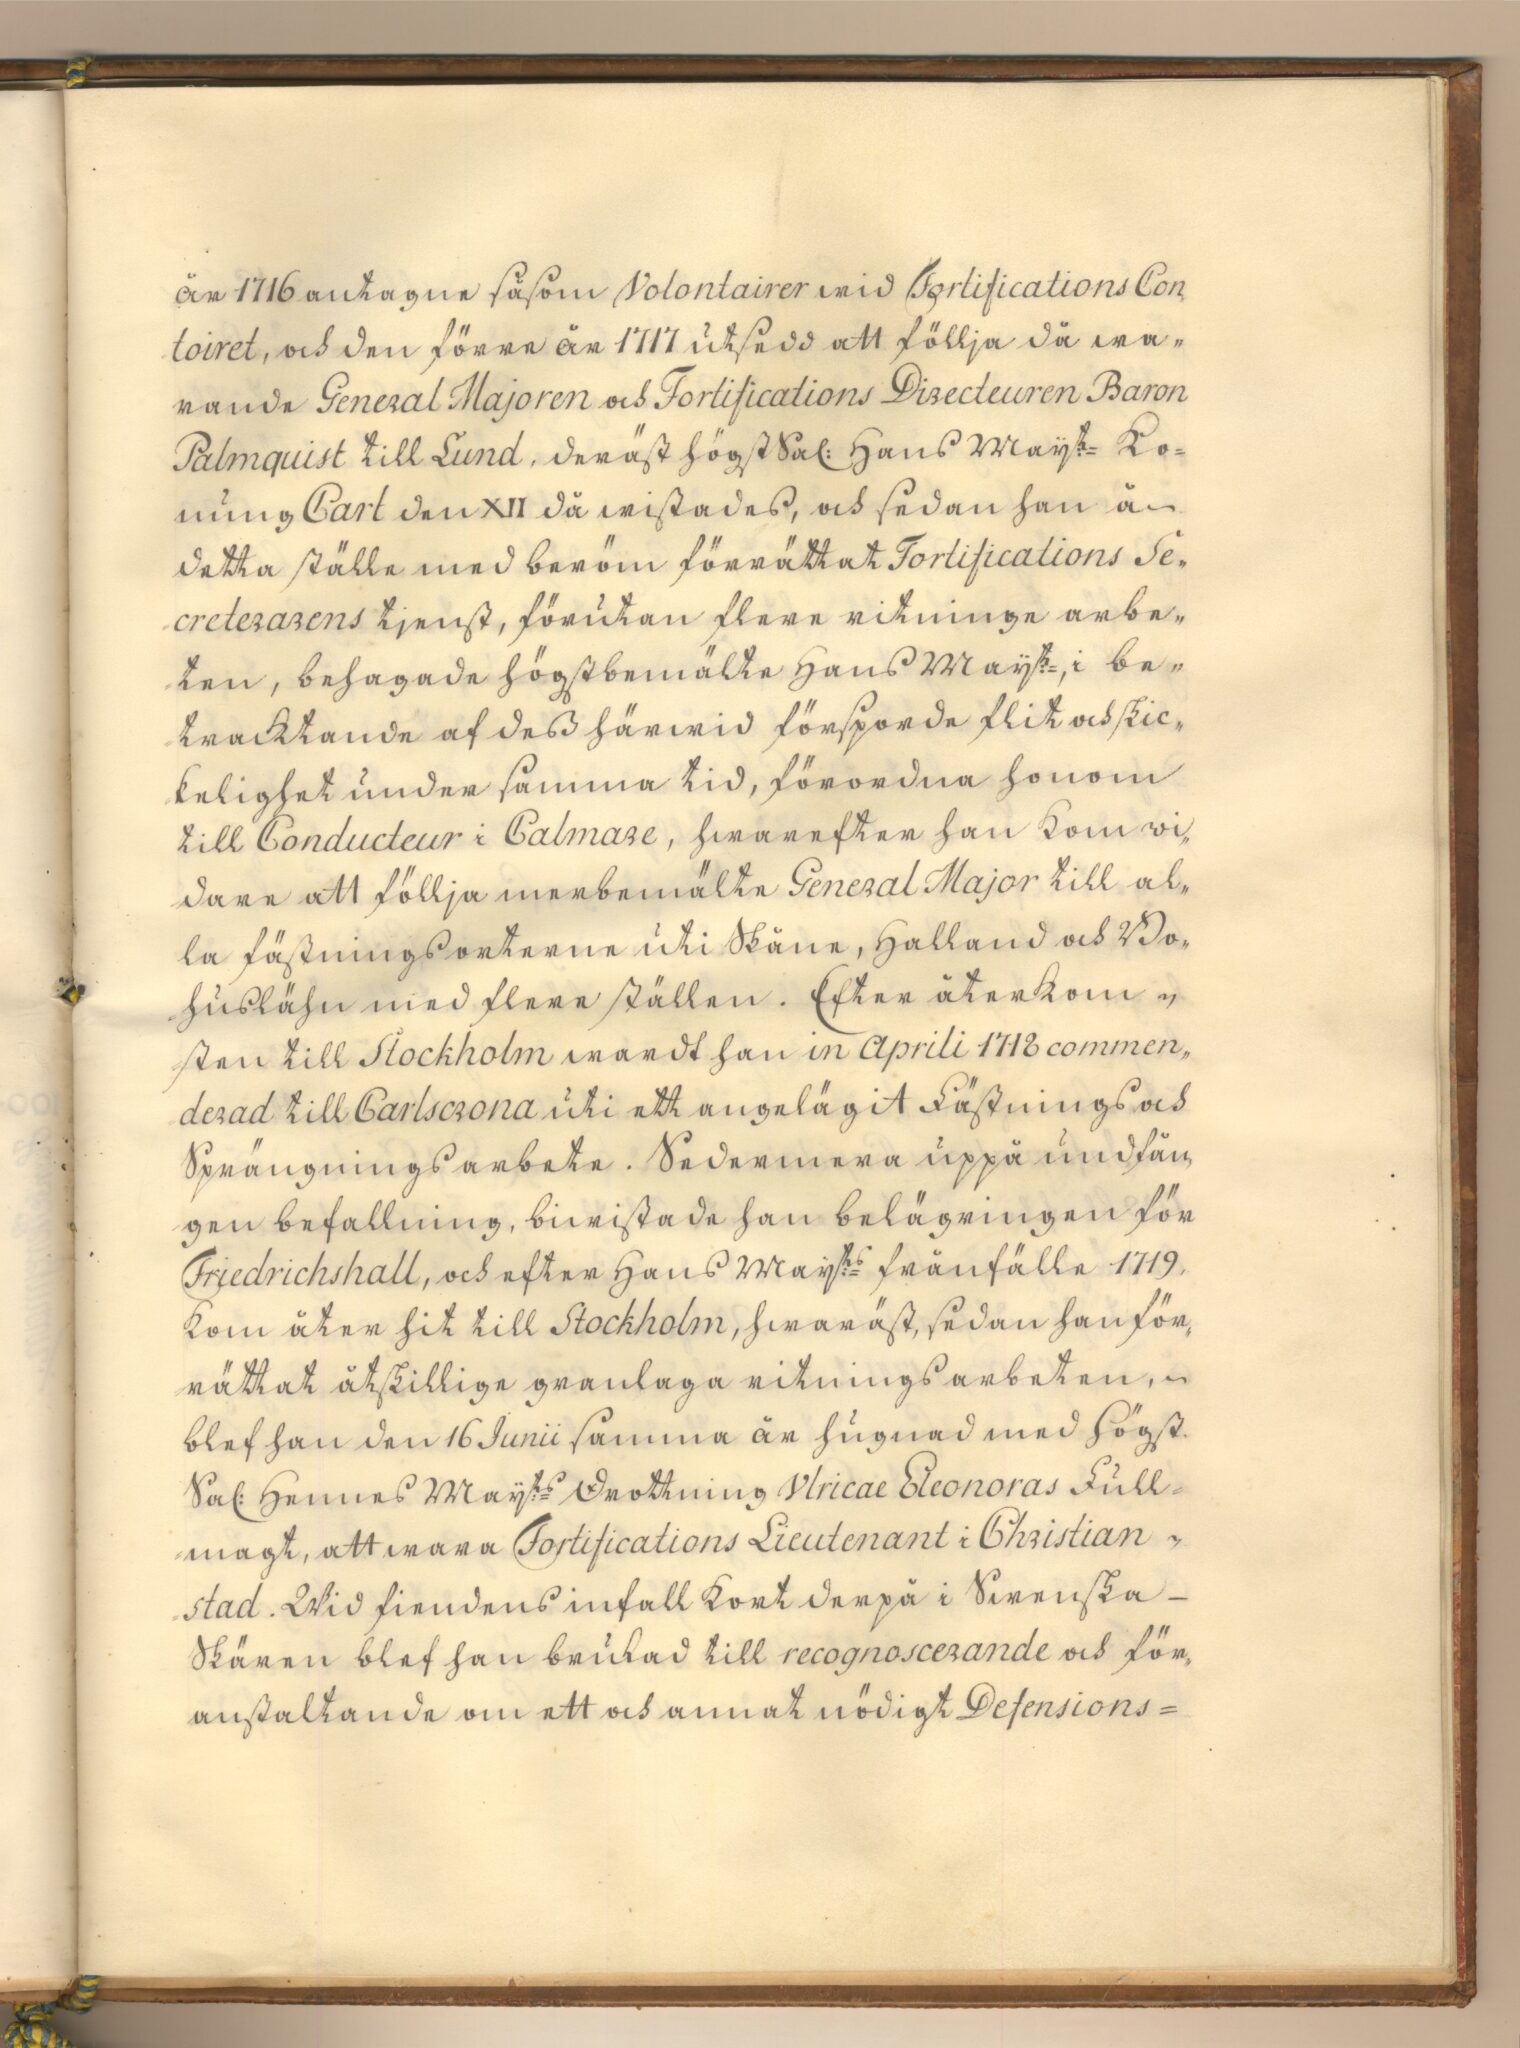 år 1716 antagne såsom Volontairer wid Fortifications Con„
toiret, och den förre år 1717 utsedd att föllja då wa„
rande General Majoren och Fortifications Directeuren Baron
Palmquist till Lund, deräst högst Sal: Hans Maij:tz Ko=
nung Carl den XII då wistades, och sedan han å
detta ställe med beröm förrättat Fortifications Se„
creterarens tjenst, förutan flere ritninge arbe„
ten, behagade högstbemälte Hans Maij:tz, i be„
tracktande af deß härwid försporde flit och skic„
kelighet under samma tid, förordna honom
till Conducteur i Calmare, hwarefter han kom wi„
dare att föllja merbemälte General Major till al„
la fästningsorterne uti Skåne, Halland och Bo„
huslähn med flere ställen. Efter återkom„
sten till Stockholm wardt han in Aprili 1718 commen„
derad till Carlscrona uti ett angelägit Fästnings och
Sprängnings arbete. Sedermera uppå undfån„
gen befallning, biwistade han belägringen för
Friedrichshall, och efter Hans Maij:tz frånfälle 1719.
kom åter hit till Stockholm, hwaräst, sedan han för„
rättat åtskillige granlaga ritnings arbeten,
blef han den 16 Junii samma år hugnad med Högst
Sal: Hennes Maij:tz Drottning Ulricae Eleonoras Full=
magt, att wara Fortifications Lieutenant i Christian„
stad. Wid fiendens infall kort derpå i Swenska
Skären blef han brukad till recognoscerande och för„
anstaltande om ett och annat nödigt Defensions=